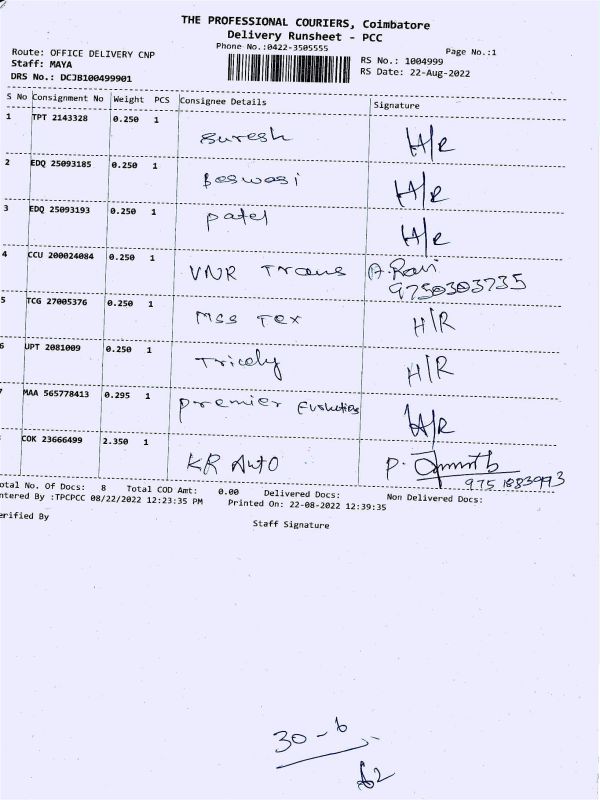 THE PROFESSIONAL COURIERS, Coimbatore
Delivery Runsheet - PCC
Phone No.:0422-3505555
Page No.:1
Route: OFFICE DELIVERY CNP
Staff: MAYA
DRS No.: DCJB100499901
RS No.: 1004999
RS Date: 22-Aug-2022
S No Consignment No Weight PCS Consignee Details Signature
1 TPT 2143328 0.250 1 Suresh H/R
2 EDQ 25093185 0.250 1 Beswasi H/R
3 EDQ 25093193 0.250 1 Patel H/R
4 CCU 200024084 0.250 1 VNR Trans A.Ravi
9750303735
5 TCG 27005376 0.250 1 MSS Tex H/R
6 UPT 2081009 0.250 1 Tricely H/R
MAA 565778413 0.295 1 Premier H/R
COK 23666499 2.350 1 KR Auto P.
otal No. Of Docs: 8 Total COD Amt: 0.00 Delivered Docs: Non Delivered Docs:
ntered By :TPCPCC 08/22/2022 12:23:35 PM Printed On: 22-08-2022 12:39:35
erified By
Staff Signature
30 - 6